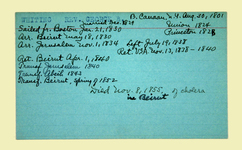 WHITING REV. GEORGE B. Canaan, N.Y. Aug. 30, 1801
Union 1824
Princeton 1828
Sailed fr. Boston Jan. 21, 1830
Arr. Beirut May 18, 1830
Arr. Jerusalem Nov. 1, 1834 Left July 19, 1838
Ret. Nov. 13, 1838-1840
Ret. Beirut Apr. 1, 1840
Transf. Jerusalem 1840
Transf. Abeih 1843
Transf. Beirut, Spring of 1852
Died Nov. 8, 1855, of cholera
in Beirut